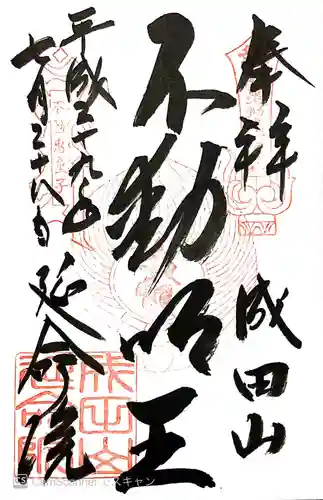 奉拝
成田山
不動明王
平成二十九年
七月二十八日
延命院
成田山
延命院
CS CamScanner でスキャン